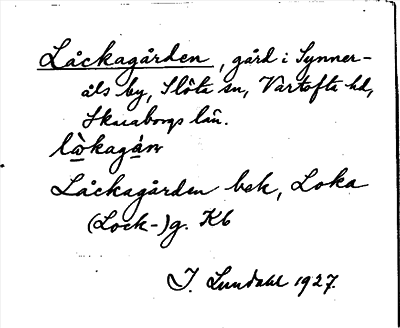 Låckagården, gård i Synner-
åls by, Slöta sn, Vartofta hd,
Skaraborgs län.
låkagår
Låckagården bek, Loka
(Lock-)g. Kb
I. Lundahl 1927.